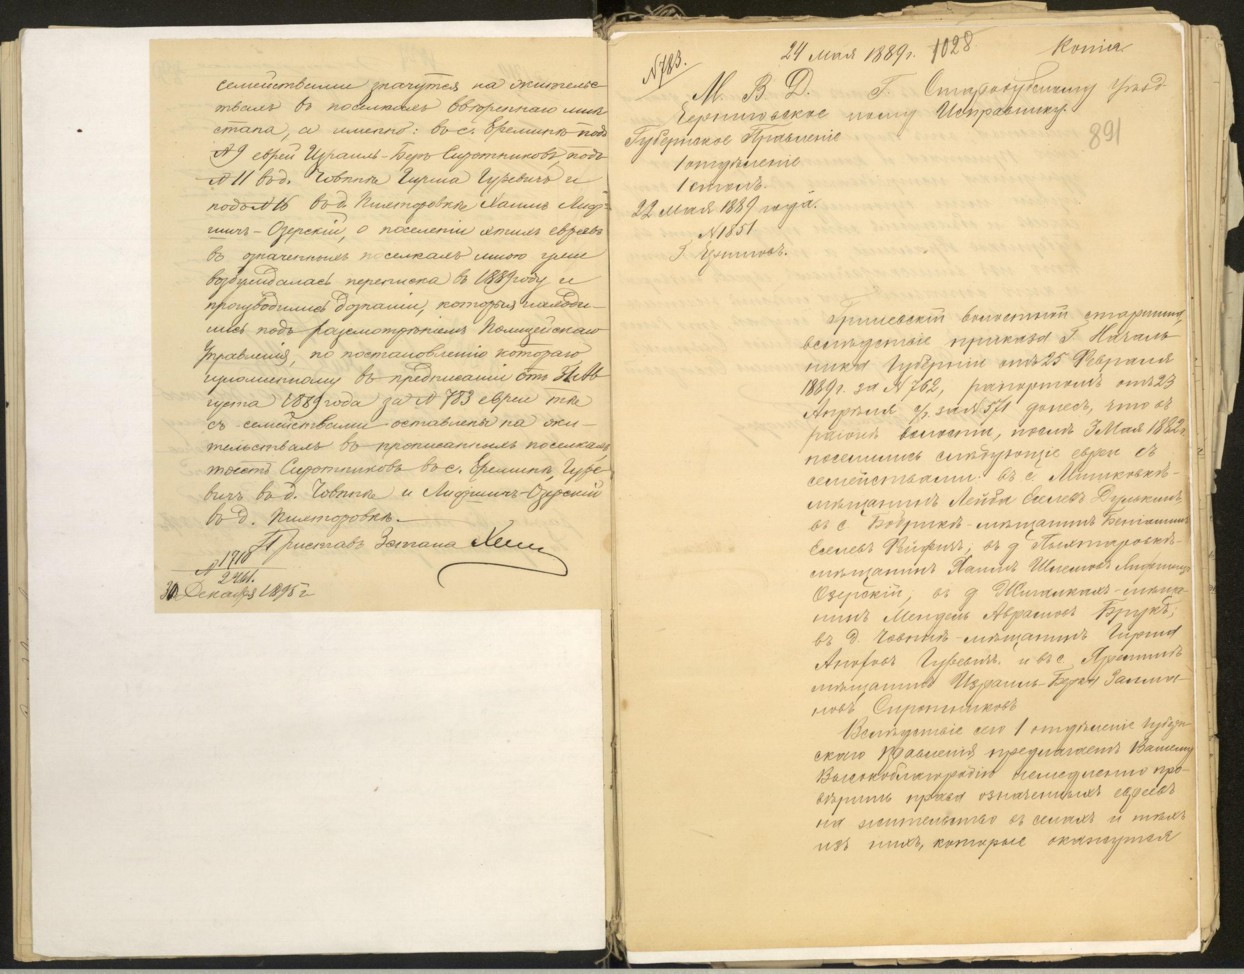 семействами значутся на жительс-
твахъ въ поселкахъ ввѣреннаго мнѣ
стана, а именно: въ с. Еремино подъ
№ 9 еврей Израиль-Беръ Сиротниковъ подъ
№ 11 въ д. Човпня Гирша Гуревичъ и
подъ № 16 въ д. Пилторовкѣ Хаимъ Лиф-
шичъ-Озерскій, о поселеніи этихъ евреевъ
въ означенныхъ поселкахъ мною уже
возбуждалась переписка въ 1889 году и
производились дознанія, которыя находи-
лись подъ разсмотрѣніемъ Полицейскаго
Управленія, по постановленію котораго
изложенному въ предписаніи отъ 31 Ав-
густа 1889 года за № 783 евреи тѣ
съ семействами оставлены на жи-
тельствахъ въ прописанныхъ поселкахъ
тоесть Сиротниковъ въ с. Еремино, Гуре-
вичъ въ д. Човпня и Лифшичъ-Озерскій
въ д. Пилторовкѣ.
Приставъ 3 стана
№ 1710
2461.
30 Декабря 1895 г
№ 783. 24 мая 1889 г. 1028 Копія
М. В. Д. Г. Стародубскому Уѣзд
Черниговское ному Исправнику.
891
Губернское Правленіе
1 отдѣленіе
1 столъ.
22 Мая 1889 года.
№ 1851
Г. Черниговъ.
волостной старшина,
вслѣдствіе приказа Г. Началь-
ника Губерніи отъ 25 Февраля
1889 г. за № 762, рапортомъ отъ 23
Апрѣля с/г за № 571 донесъ, что въ
районѣ волости, послѣ 3 Мая 1882 г
поселились слѣдующіе евреи съ
семействами: въ с. Мишковкѣ-
мѣщанинъ Лейба
въ с. Бобрикѣ-мѣщанинъ Беніаминъ
въ д. Пилторовкѣ-
мѣщанинъ Хаимъ Шлемовъ Лифшицъ
Озерскій, въ д. -мѣща-
нинъ Мендель Абрамовъ Брукъ,
въ д. Човпня-мѣщанинъ Гирша
Гуревичъ и въ с. Яремино
мѣщанинъ Израиль-Беръ Залма-
новъ Сиротниковъ
Вслѣдствіе сего 1 отдѣленіе Губерн-
скаго Правленія предлагаетъ Вашему
Высокоблагородію немедленно про-
вѣрить права означенныхъ евреевъ
на жительство въ селахъ и тѣхъ
изъ нихъ, которые окажутся